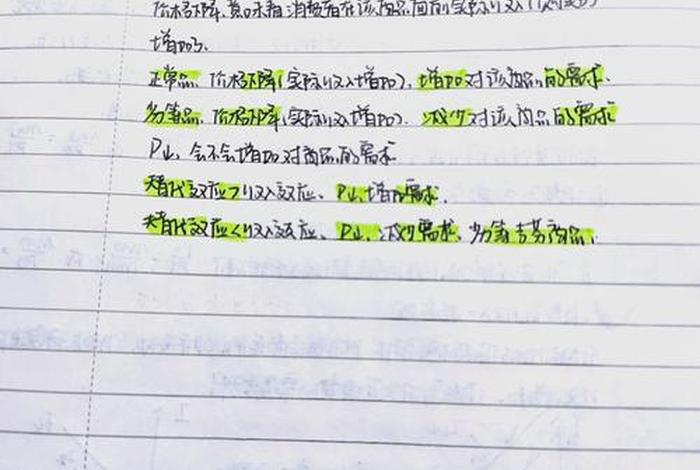 价格下降,意味着消费者在该商品面前实际收入(购买力)
增加了.
正常品、价格下降(实际收入增加),增加对该商品的需求.
劣等品、价格下降(实际收入增加).减少对该商品的需求
P↓,会不会增加对商品的需求
替代效应>收入效应、P↓,增加需求.
替代效应<收入效应、P↓,减少需求、劣等吉芬商品.